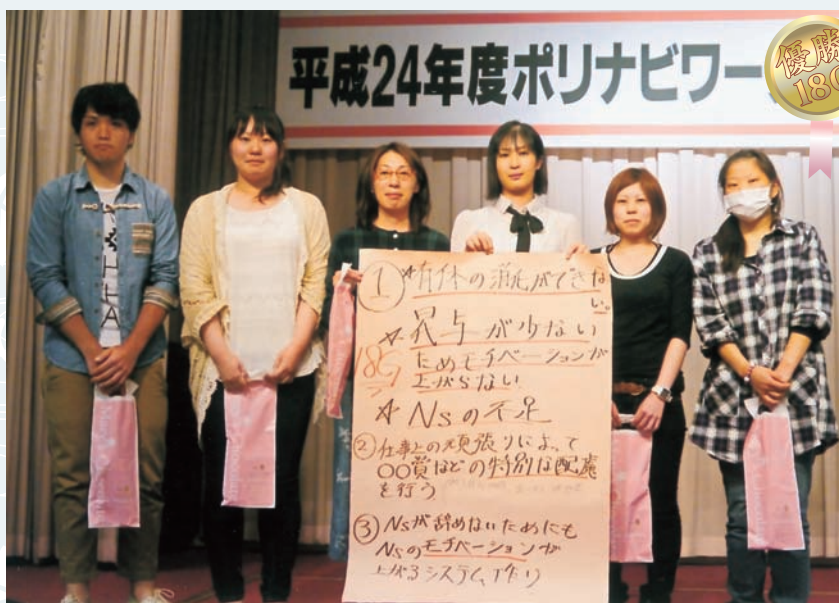 平成24年度ポリナビワー
優勝
18G
① ☆有休の消化ができな
い。
☆ 給与が少ない
18G
ためモチベーションが
上がらない
☆ Nsの不足
② 仕事上の頑張りによって
○○賞などの特別な配慮
を行う
③ Nsが辞めないためにも
Nsのモチベーションが
上がるシステム作り